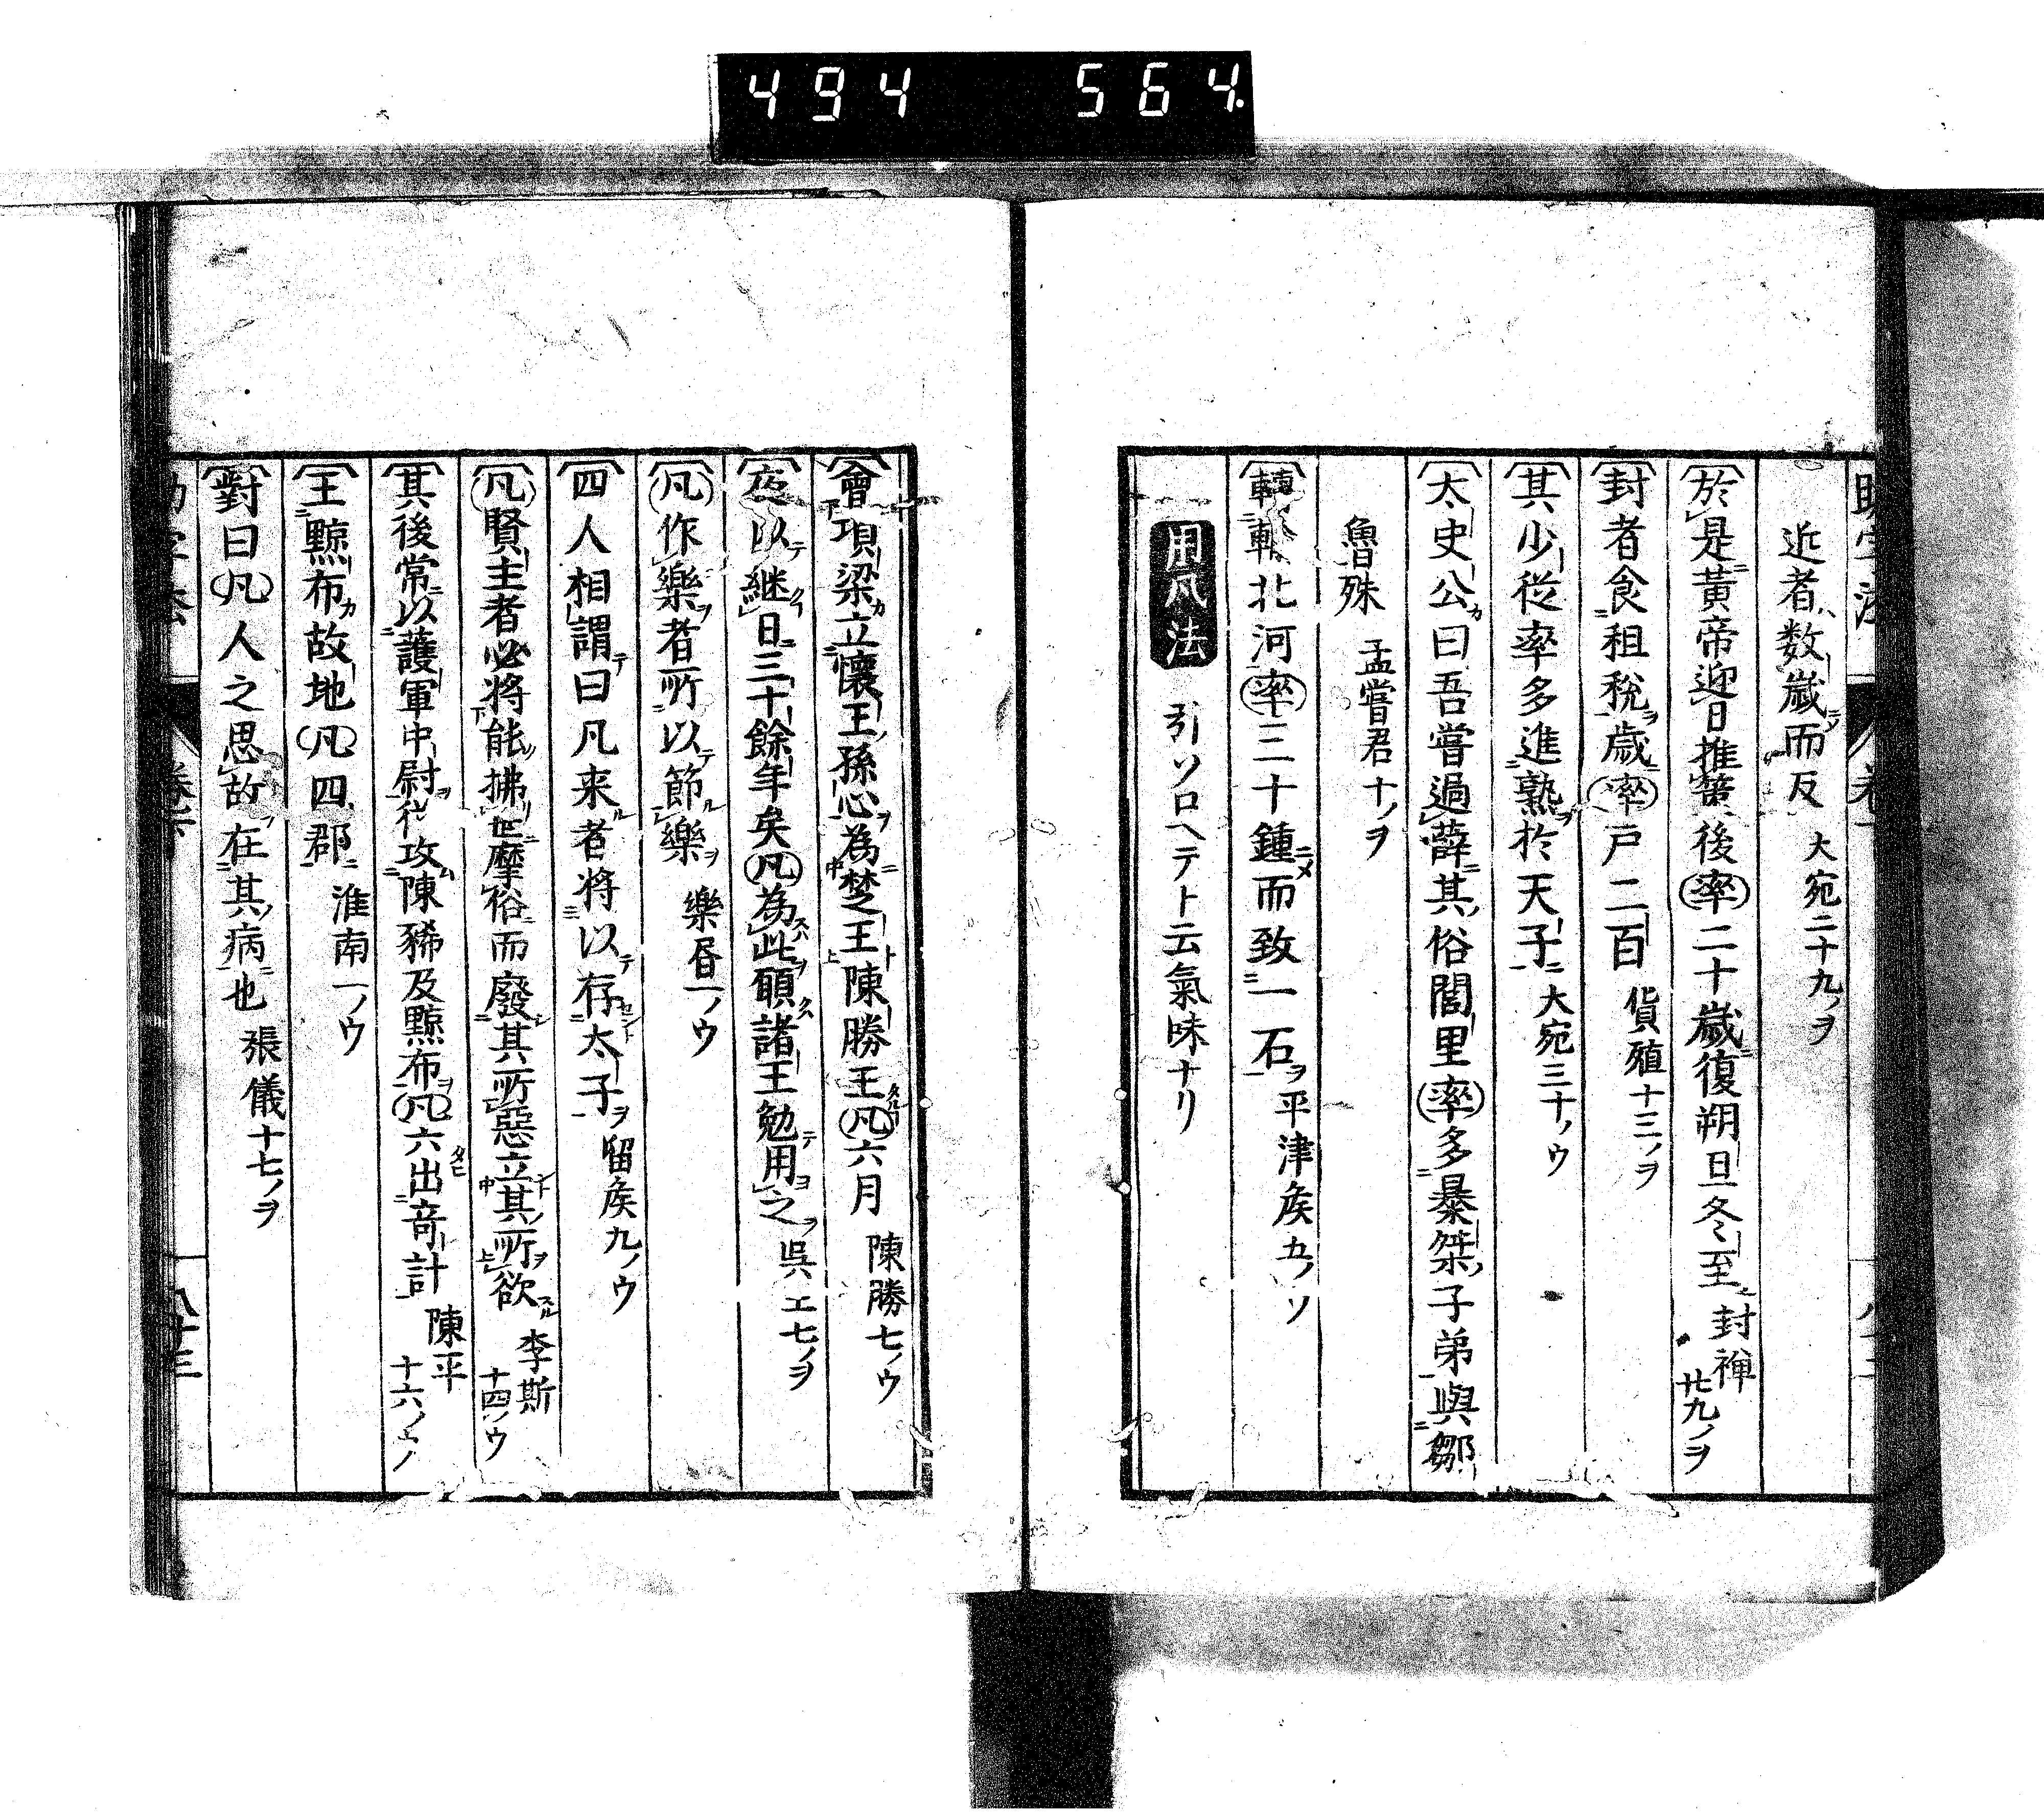 494 564.
近者数歳而反 大宛二十九ノヲ
於是黄帝迎日推策後率二十歳復朔旦冬至 封禅 廿九ノヲ
封者食租税歳率戸二百 貨殖十三ノヲ
其少従率多進熟於天子 大宛三十ノウ
太史公曰吾嘗過薛其俗閭里率多暴桀子弟與鄒
魯殊 孟嘗君十ノヲ
北河率三十鍾而致一石 平津侯五ノソ
用凡法 引ソロヘテト云氣味ナリ
會項梁立懐王孫心為楚王陳勝王凡六月 陳勝七ノウ
以継日三十餘年矣凡為此願諸王勉用之 呉エ七ノヲ
凡作樂者所以節樂 樂昏一ノウ
四人相謂曰凡来者将以存太子 留侯九ノウ
凡賢主者必将能拂世摩俗而廢其所惡立其所欲 李斯 十四ノウ
其後常以護軍中尉従攻陳豨及黥布凡六出奇計 陳平 十六ノ
王黥布故地凡四郡 淮南一ノウ
對曰凡人之思故在其病也 張儀十七ノヲ
巻下
八十三